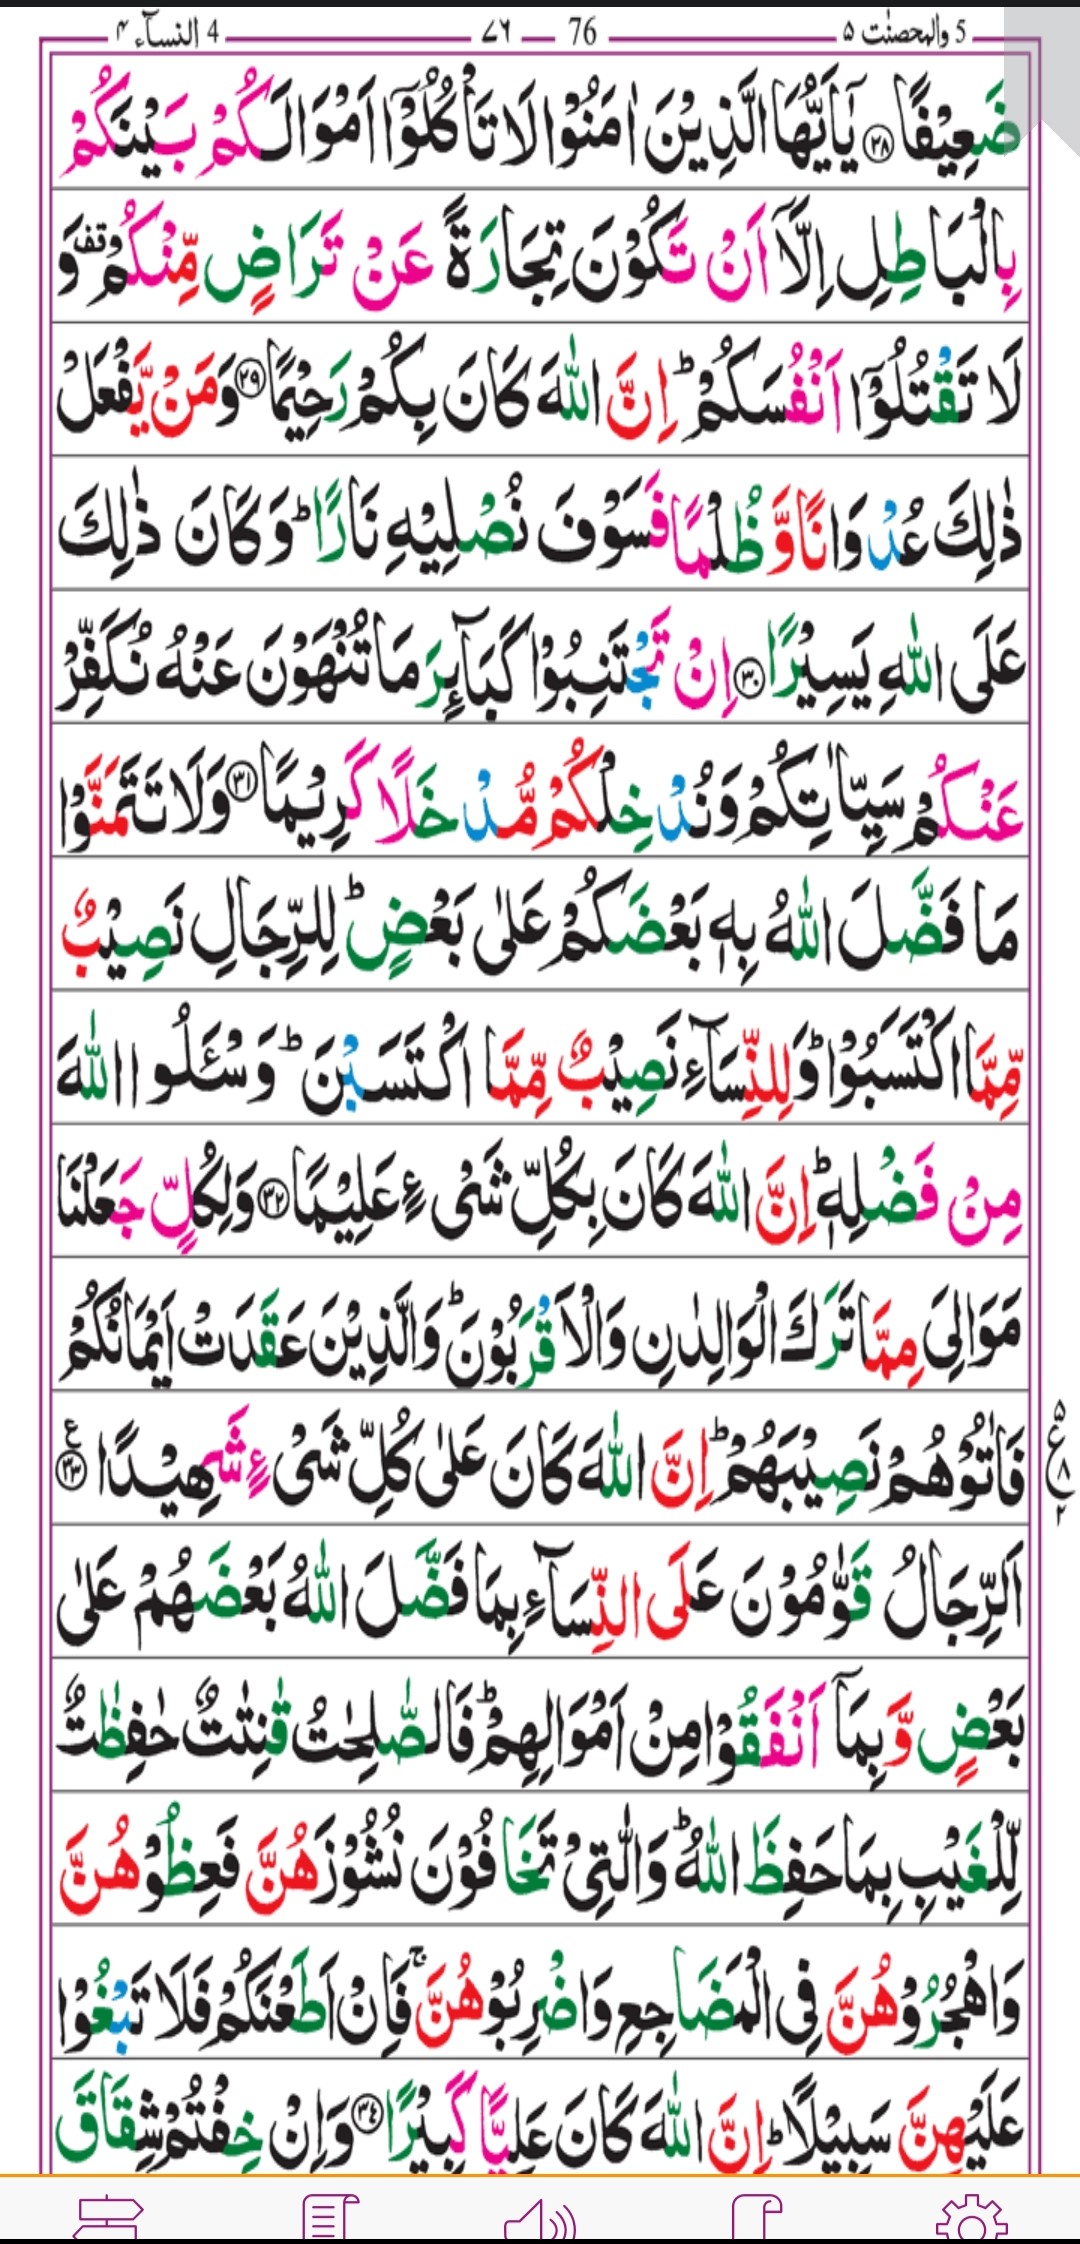 5 والمحصنٰت ۵ 76 ۷۶ 4 النسآء ۴
ضَعِیْفًا ﴿۲۸﴾ یٰۤاَیُّهَا الَّذِیْنَ اٰمَنُوْا لَا تَاْكُلُوْۤا اَمْوَالَكُمْ بَیْنَكُمْ
بِالْبَاطِلِ اِلَّاۤ اَنْ تَكُوْنَ تِجَارَةً عَنْ تَرَاضٍ مِّنْكُمْ ۫ وَ
لَا تَقْتُلُوْۤا اَنْفُسَكُمْ ؕ اِنَّ اللّٰهَ كَانَ بِكُمْ رَحِیْمًا ﴿۲۹﴾ وَمَنْ یَّفْعَلْ
ذٰلِكَ عُدْوَانًا وَّ ظُلْمًا فَسَوْفَ نُصْلِیْهِ نَارًا ؕ وَكَانَ ذٰلِكَ
عَلَی اللّٰهِ یَسِیْرًا ﴿۳۰﴾ اِنْ تَجْتَنِبُوْا كَبَآىِٕرَ مَا تُنْهَوْنَ عَنْهُ نُكَفِّرْ
عَنْكُمْ سَیِّاٰتِكُمْ وَنُدْخِلْكُمْ مُّدْخَلًا كَرِیْمًا ﴿۳۱﴾ وَلَا تَتَمَنَّوْا
مَا فَضَّلَ اللّٰهُ بِهٖ بَعْضَكُمْ عَلٰی بَعْضٍ ؕ لِلرِّجَالِ نَصِیْبٌ
مِّمَّا اكْتَسَبُوْا ؕ وَلِلنِّسَآءِ نَصِیْبٌ مِّمَّا اكْتَسَبْنَ ؕ وَسْـَٔلُوا اللّٰهَ
مِنْ فَضْلِهٖ ؕ اِنَّ اللّٰهَ كَانَ بِكُلِّ شَیْءٍ عَلِیْمًا ﴿۳۲﴾ وَلِكُلٍّ جَعَلْنَا
مَوَالِیَ مِمَّا تَرَكَ الْوَالِدٰنِ وَالْاَقْرَبُوْنَ ؕ وَالَّذِیْنَ عَقَدَتْ اَیْمَانُكُمْ
فَاٰتُوْهُمْ نَصِیْبَهُمْ ؕ اِنَّ اللّٰهَ كَانَ عَلٰی كُلِّ شَیْءٍ شَهِیْدًا ﴿۳۳﴾ ع
۵ ع ۸ ۲
اَلرِّجَالُ قَوّٰمُوْنَ عَلَی النِّسَآءِ بِمَا فَضَّلَ اللّٰهُ بَعْضَهُمْ عَلٰی
بَعْضٍ وَّ بِمَاۤ اَنْفَقُوْا مِنْ اَمْوَالِهِمْ ؕ فَالصّٰلِحٰتُ قٰنِتٰتٌ حٰفِظٰتٌ
لِّلْغَیْبِ بِمَا حَفِظَ اللّٰهُ ؕ وَالّٰتِیْ تَخَافُوْنَ نُشُوْزَهُنَّ فَعِظُوْهُنَّ
وَاهْجُرُوْهُنَّ فِی الْمَضَاجِعِ وَاضْرِبُوْهُنَّ ۚ فَاِنْ اَطَعْنَكُمْ فَلَا تَبْغُوْا
عَلَیْهِنَّ سَبِیْلًا ؕ اِنَّ اللّٰهَ كَانَ عَلِیًّا كَبِیْرًا ﴿۳۴﴾ وَاِنْ خِفْتُمْ شِقَاقَ